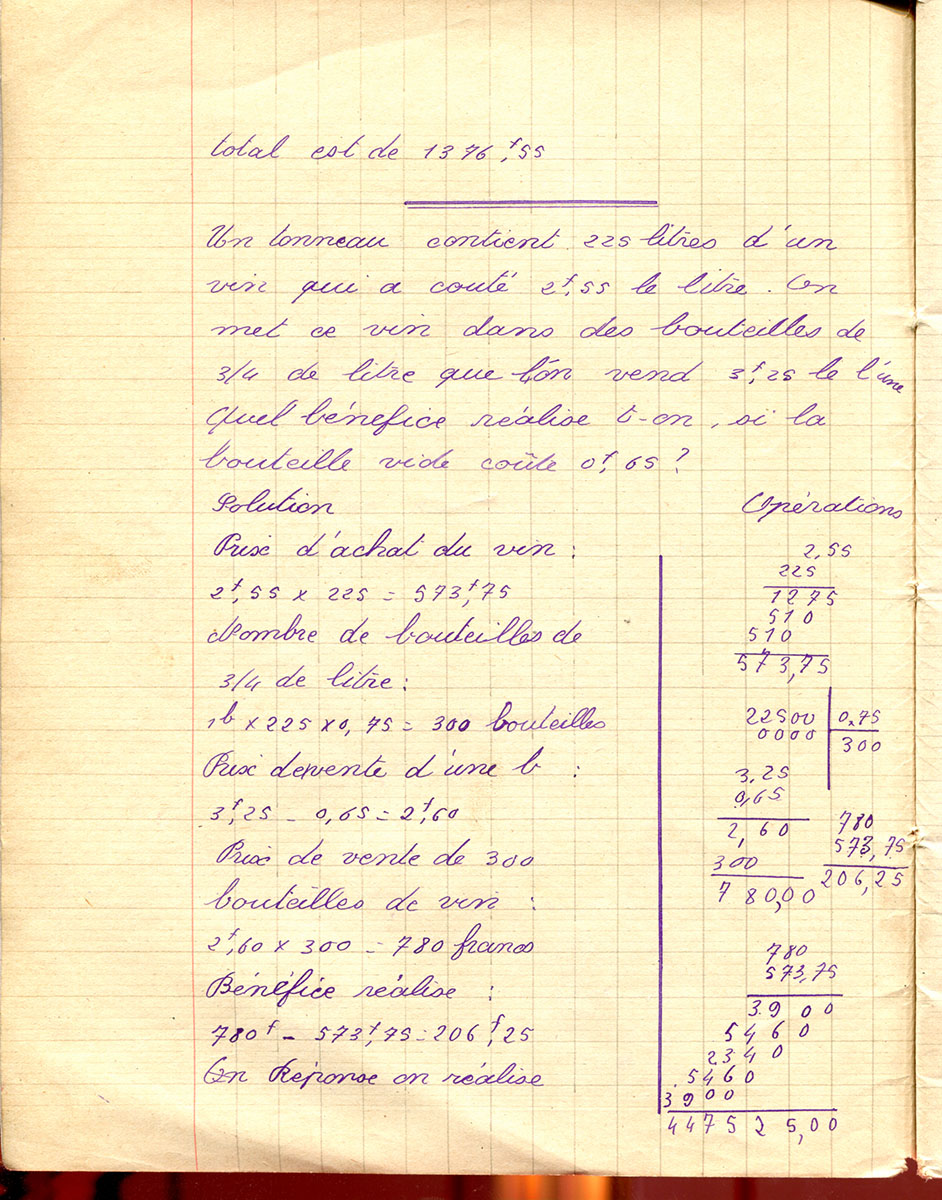 total est de 1376f,55
Un tonneau contient 225 litres d'un
vin qui a couté 2f,55 le litre. On
met ce vin dans des bouteilles de
3/4 de litre que l'on vend 3f,25 le l'une
Quel bénéfice réalise t-on, si la
bouteille vide coûte 0f,65 ?
Solution
Prix d'achat du vin :
2f,55 x 225 = 573f,75
Nombre de bouteilles de
3/4 de litre :
1b x 225 x 0,75 = 300 bouteilles
Prix de vente d'une b :
3f,25 - 0,65 = 2f,60
Prix de vente de 300
bouteilles de vin :
2f,60 x 300 = 780 francs
Bénéfice réalise :
780f - 573f,75 = 206f,25
En Réponse on réalise
Opérations
2,55
225
1275
510
510
573,75
22500 0,75
0000 300
3,25
0,65
2,60
300
780,00
780
573,75
206,25
780
573,75
3900
5460
2340
5460
3900
447525,00